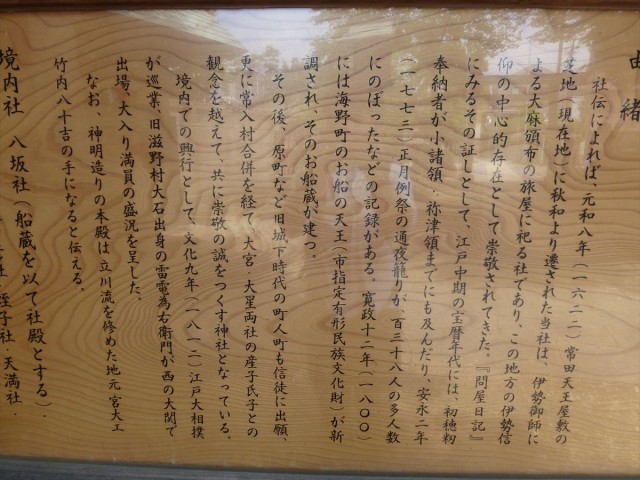 由緒
社伝によれば、元和八年（一六二二）常田天王屋敷の
芝地（現在地）に秋和より遷された当社は、伊勢御師に
よる大麻頒布の旅屋に祀る社であり、この地方の伊勢信
仰の中心的存在として崇敬されてきた。『問屋日記』
にみるその証しとして、江戸中期の宝暦年代には、初穂籾
奉納者が小諸領・祢津領までにも及んだり、安永二年
（一七七三）正月例祭の通夜籠りが、百三十八人の多人数
にのぼったなどの記録がある。寛政十二年（一八〇〇）
には海野町のお船の天王（市指定有形民族文化財）が新
調され、そのお船蔵が建つ。
その後、原町など旧城下時代の町人町も信徒に出願、
更に常入村合併を経て、大宮・大星両社の産子氏子との
観念を越えて、共に崇敬の誠をつくす神社となっている。
境内での興行として、文化九年（一八一二）江戸大相撲
が巡業、旧滋野村大石出身の雷電為右衛門が西の大関で
出場、大入り満員の盛況を呈した。
なお、神明造りの本殿は立川流を修めた地元宮大工
竹内八十吉の手になると伝える。
境内社 八坂社（船蔵を以て社殿とする）・
蛭子社・天満社・